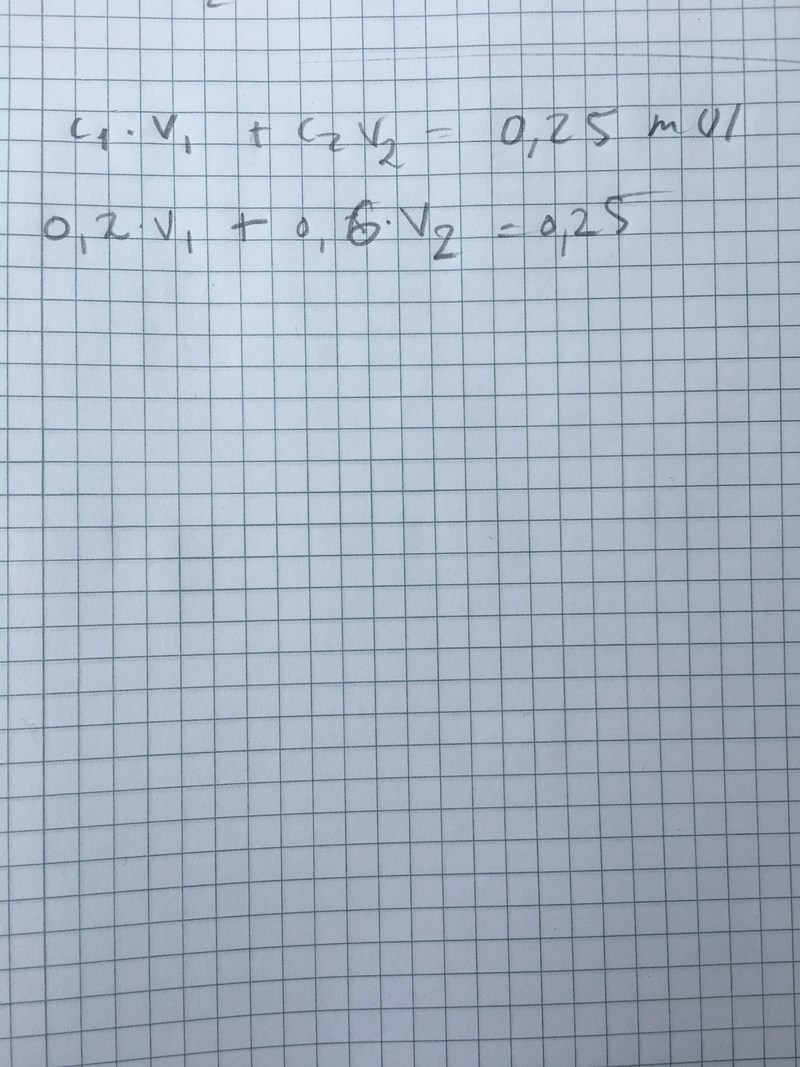 c₁ · V₁ + c₂ V₂ = 0,25 mol
0,2 · V₁ + 0,6 · V₂ = 0,25